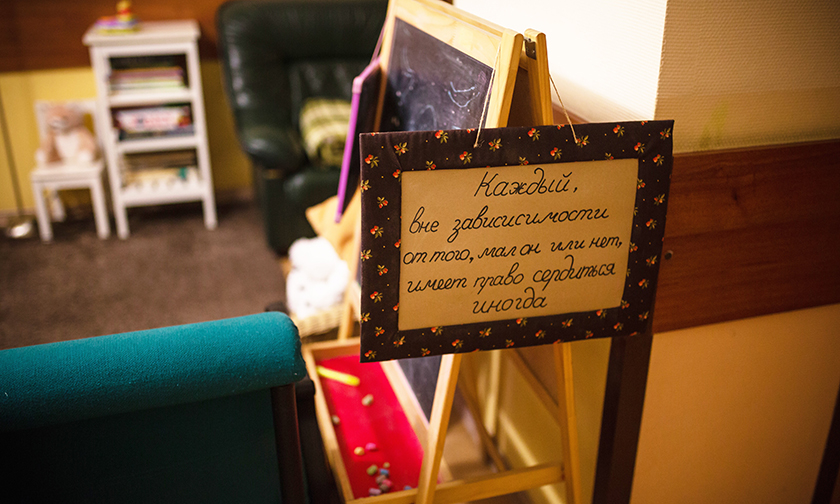 Каждый,
вне зависисимости
от того, мал он или нет,
имеет право сердиться
иногда